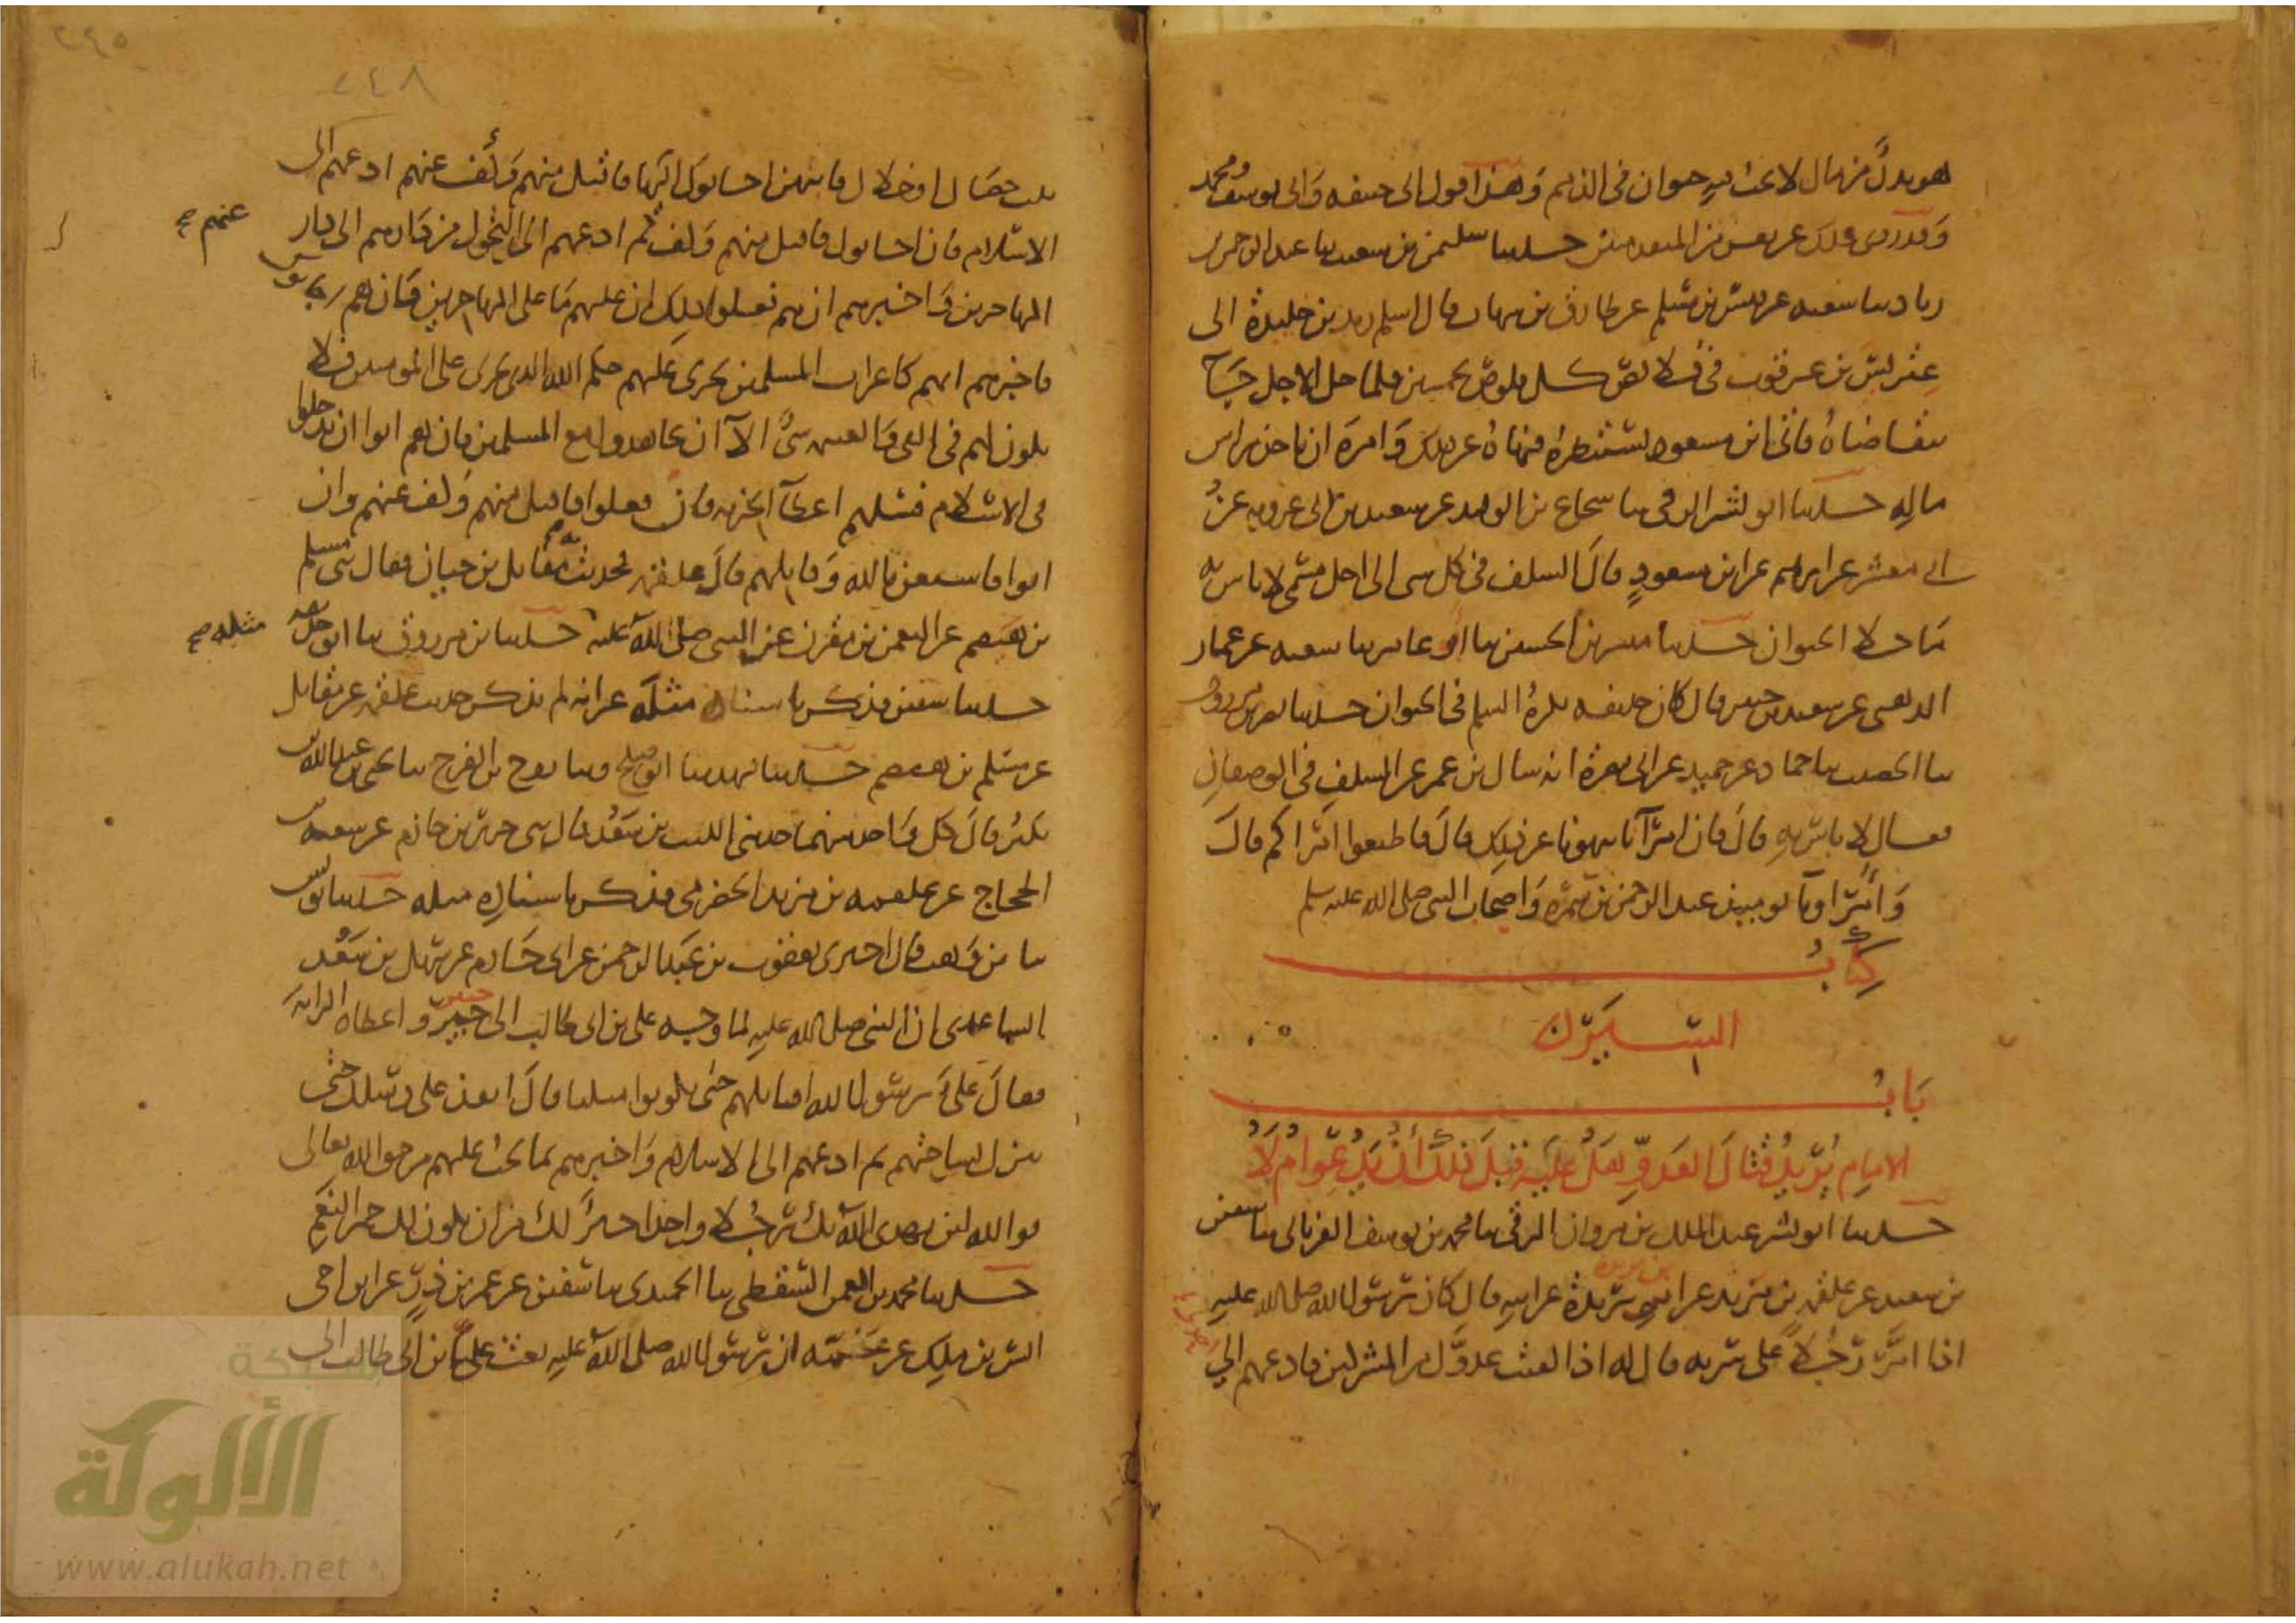 هو بدل من مال لا يجب فيه حيوان في الذمم وهذا قول ابي حنيفه وابي يوسف ومحمد
وقد روي ذلك عن بعض من المتقدمين حدثنا سليمن بن شعيب ثنا عبد الرحمن بن
زياد ثنا شعبه عن قيس بن مسلم عن طارق بن شهاب قال اسلم زيد بن خليدة الى
عتريس بن عرقوب في قلائص كل قلوص بخمسين فلما حل الاجل جاء
يتقاضاه فاتى ابن مسعود يستنظره فنهاه عن ذلك وامره ان ياخذ براس
ماله حدثنا ابو بشر الرقي ثنا شجاع بن الوليد عن سعيد بن ابي عروبه عن
ابي معشر عن ابراهيم عن ابن مسعود قال السلف في كل شي الى اجل مسمى لا باس به
ما خلا الحيوان حدثنا مبشر بن الحسن ثنا ابو عامر ثنا شعبه عن عمار
الدهني عن سعيد بن جبير قال كان حذيفه يكره السلم في الحيوان حدثنا نصر بن مرزوق
ثنا الخصيب ثنا حماد عن حميد عن ابي نضرة انه سال بن عمر عن السلف في الوصفان
فقال لا باس به قال فان امرآنا ينهونا عن ذلك قال فاطيعوا امراكم قال
وامراونا يوميذ عبد الرحمن بن سمرة واصحاب النبي صلى الله عليه وسلم
كتاب
السير
باب
الامام يريد قتال العدو هل عليه قبل ذلك ان يدعوا ام لا
حدثنا ابو بشر عبد الملك بن مروان الرقي ثنا محمد بن يوسف الفريابي ثنا سفين
بن سعيد عن علقمة بن مرثد عن ابن بريدة عن ابيه قال كان رسول الله صلى الله عليه
اذا امر رجلا على سريه قال له اذا لقيت عدوك من المشركين فادعهم الى
٢٤٨
ثلث خصال او خلال فايتهن اجابوك اليها فاقبل منهم وكف عنهم ادعهم الى
الاسلام فان اجابوك فاقبل منهم وكف ثم ادعهم الى التحول من دارهم الى دار
عنهم صح
المهاجرين واخبرهم ان هم فعلوا ذلك ان عليهم ما على المهاجرين فان هم
فاخبرهم انهم كاعراب المسلمين يجري عليهم حكم الله الذي يجري على المومنين ولا
يكون لهم في الفي والغنيمه شي الا ان يجاهدوا مع المسلمين فان هم ابوا ان يدخلوا
في الاسلام فسلهم اعطآ الجزيه فان فعلوا فاقبل منهم وكف عنهم وان
ابوا فاستعن بالله وقاتلهم قال علقمه فحدثت به مقاتل بن حيان فقال ثني مسلم
بن هيصم عن النعمن بن مقرن عن النبي صلى الله عليه حدثنا بن مرزوق ثنا ابو حذيفه
مثله صح
حدثنا سفين فذكر باسناده مثله غير انه لم يذكر حديث علقمه عن مقاتل
عن مسلم بن هيصم حدثنا فهد ثنا ابو صلح وثنا روح بن الفرج ثنا يحيى بن عبد الله بن
بكير قال كل واحد منهما حدثني الليث بن سعد قال ثني جرير بن حازم عن شعبه بن
الحجاج عن علقمه بن مرثد الحضرمي فذكر باسناده مثله حدثنا يونس
ثنا بن وهب قال اخبرني يعقوب بن عبد الرحمن عن ابي حازم عن سهل بن سعد
الساعدي ان النبي صلى الله عليه لما وجه علي بن ابي طالب الى خيبر واعطاه الرايه
فقال علي رسول الله اقاتلهم حتى يكونوا مثلنا قال انفذ على رسلك حتى
تنزل بساحتهم ثم ادعهم الى الاسلام واخبرهم بما يجب عليهم من حق الله تعالى
فوالله لئن يهدي الله بك رجلا واحدا خير لك من ان يكون لك حمر النعم
حدثنا محمد بن النعمن السقطي ثنا الحميدي ثنا سفين عن عمر بن ذر عن ابن اخي
انس بن ملك عن عمه ان رسول الله صلى الله عليه بعث علي بن ابي طالب الى
شبكة
الألوكة
www.alukah.net